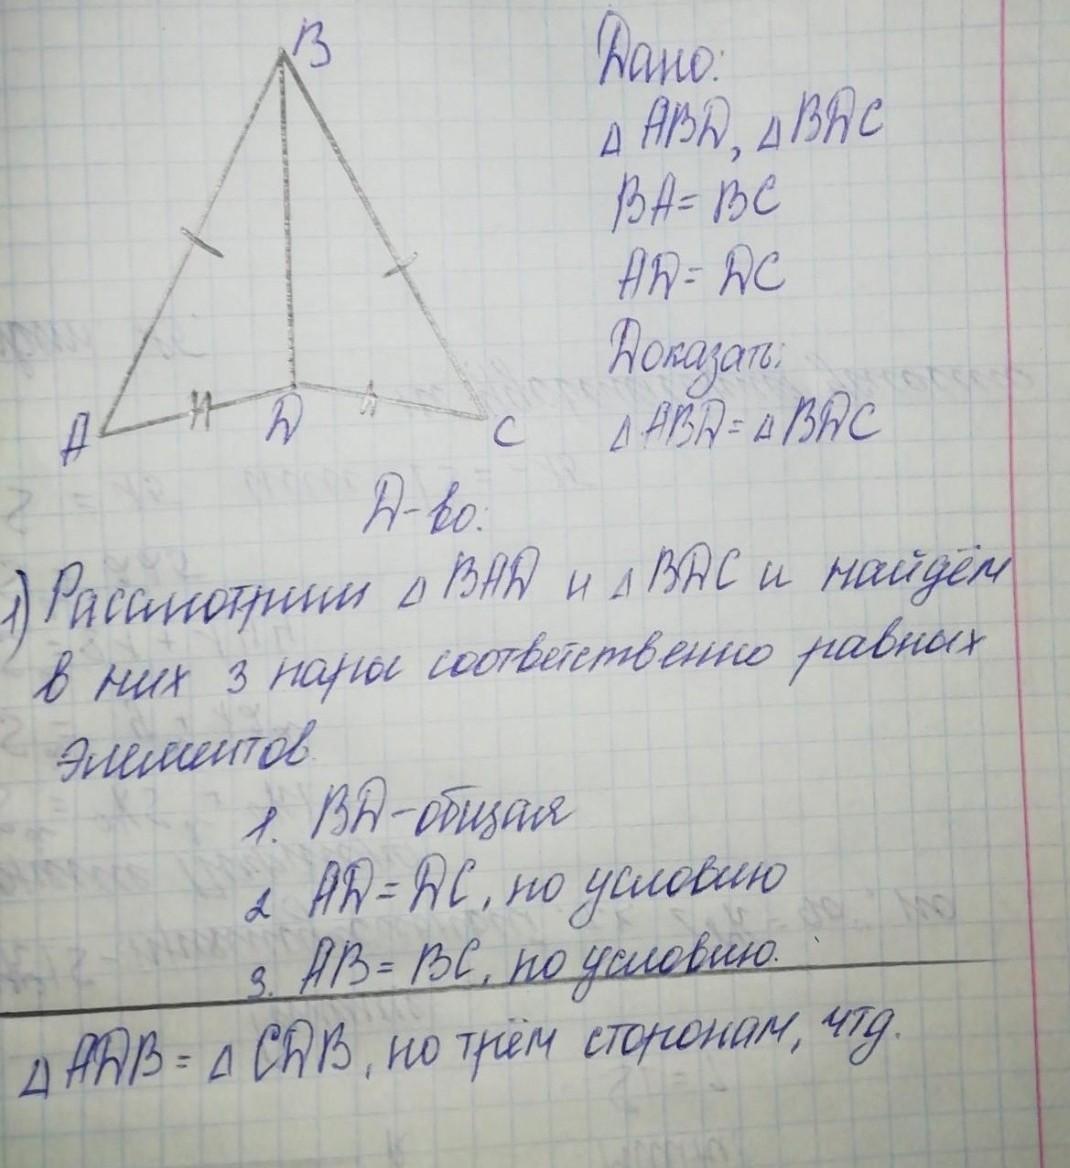 B
A
D
C
Дано:
△ABD, △BDC
BA = BC
AD = DC
Доказать:
△ABD = △BDC
Д-во:
1) Рассмотрим △BAD и △BDC и найдём
в них 3 пары соответственно равных
элементов.
1. BD - общая
2. AD = DC, по условию
3. AB = BC, по условию.
△ADB = △CDB, по трём сторонам, чтд.